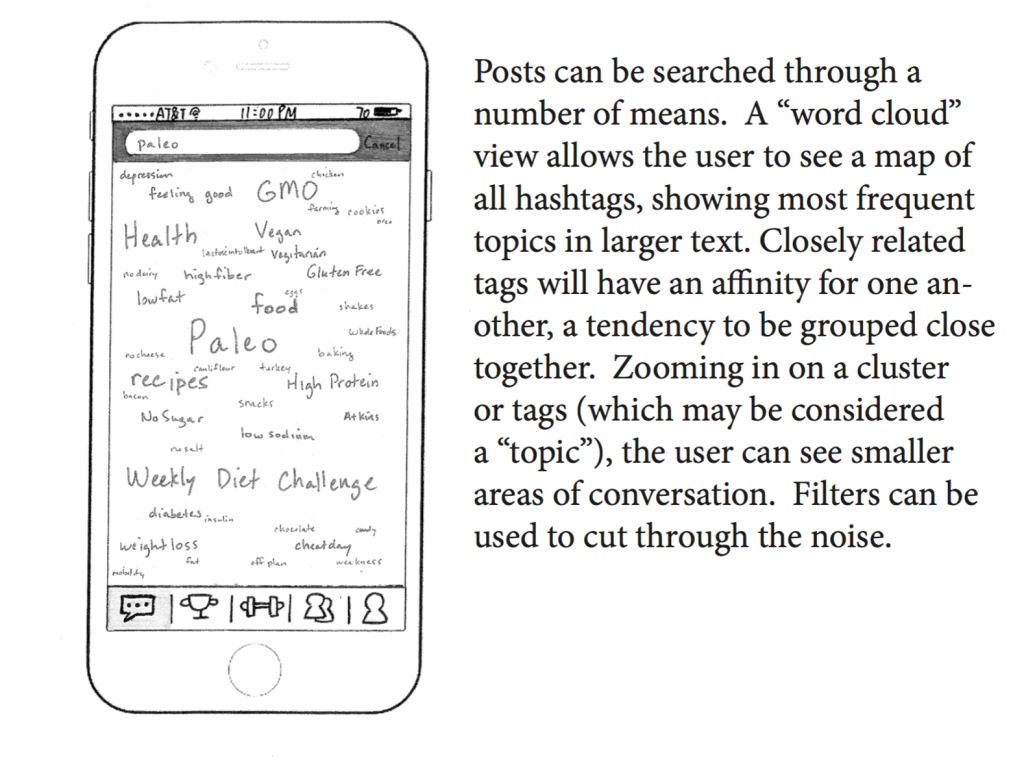 AT&T 11:00 PM 70
paleo Cancel
depression chicken
feeling good GMO
farming cookies
oreo
Health Vegan
lactoseintolleant Vegitarian
no dairy high fiber Gluten Free
low fat eggs
food shakes
Paleo Whole Foods
no cheese baking
cauliflour turkey
recipes High Protein
bacon
snacks
No Sugar Atkins
low sodium
no salt
Weekly Diet Challenge
diabetes insulin
chocolate candy
weight loss cheat day
fat off plan weakness
Posts can be searched through a
number of means. A “word cloud”
view allows the user to see a map of
all hashtags, showing most frequent
topics in larger text. Closely related
tags will have an affinity for one an-
other, a tendency to be grouped close
together. Zooming in on a cluster
or tags (which may be considered
a “topic”), the user can see smaller
areas of conversation. Filters can be
used to cut through the noise.